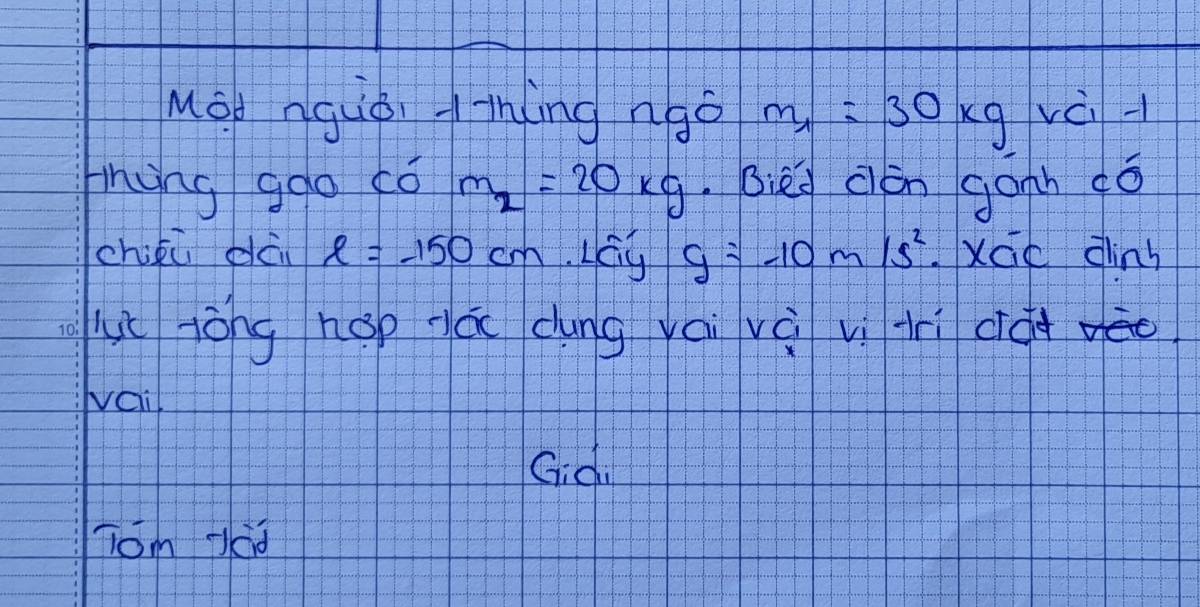 Một người 1 thùng ngô m₁ = 30 kg và 1
thùng gạo có m₂ = 20 kg. Biết đòn gánh có
chiều dài l = 150 cm. Lấy g = 10 m/s². Xác định
10. lực tổng hợp tác dụng vai và vị trí đặt vào
vai.
Giải
Tóm tắt